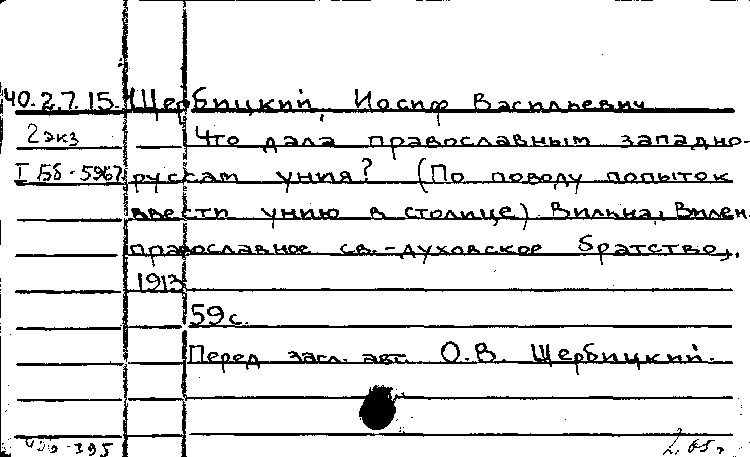 40.2.7.15. Щербицкий, Иосиф Васильевич
2 экз Что дала православным западно-
I Бб-5967 руссам уния? (По поводу попыток
ввести унию в столице) Вильна, Вилен.
православное св.-духовское братство,
1913
59 с.
Перед загл. авт. О.В. Щербицкий.